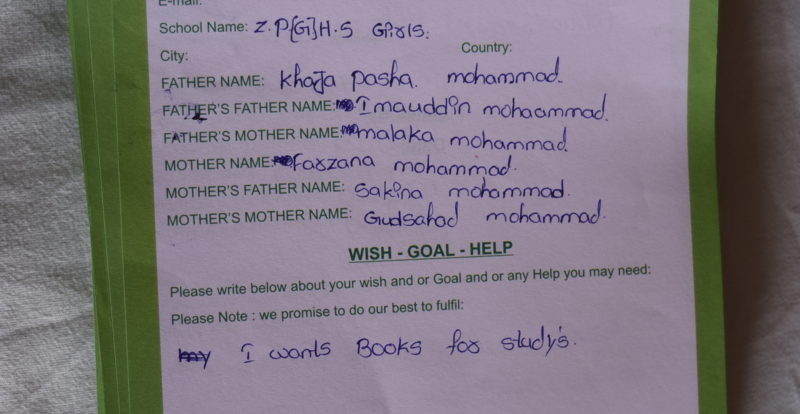 E-mail:
School Name: Z.P[G]H.S Girls.
City: Country:
FATHER NAME: Khaja Pasha. mohammad.
FATHER'S FATHER NAME: Imauddin mohaammad.
FATHER'S MOTHER NAME: malaka mohammad.
MOTHER NAME: Farzana mohammad.
MOTHER'S FATHER NAME: Sakina mohammad.
MOTHER'S MOTHER NAME: Gudsahad mohammad.
WISH - GOAL - HELP
Please write below about your wish and or Goal and or any Help you may need:
Please Note : we promise to do our best to fulfil:
my I wants Books for study's.